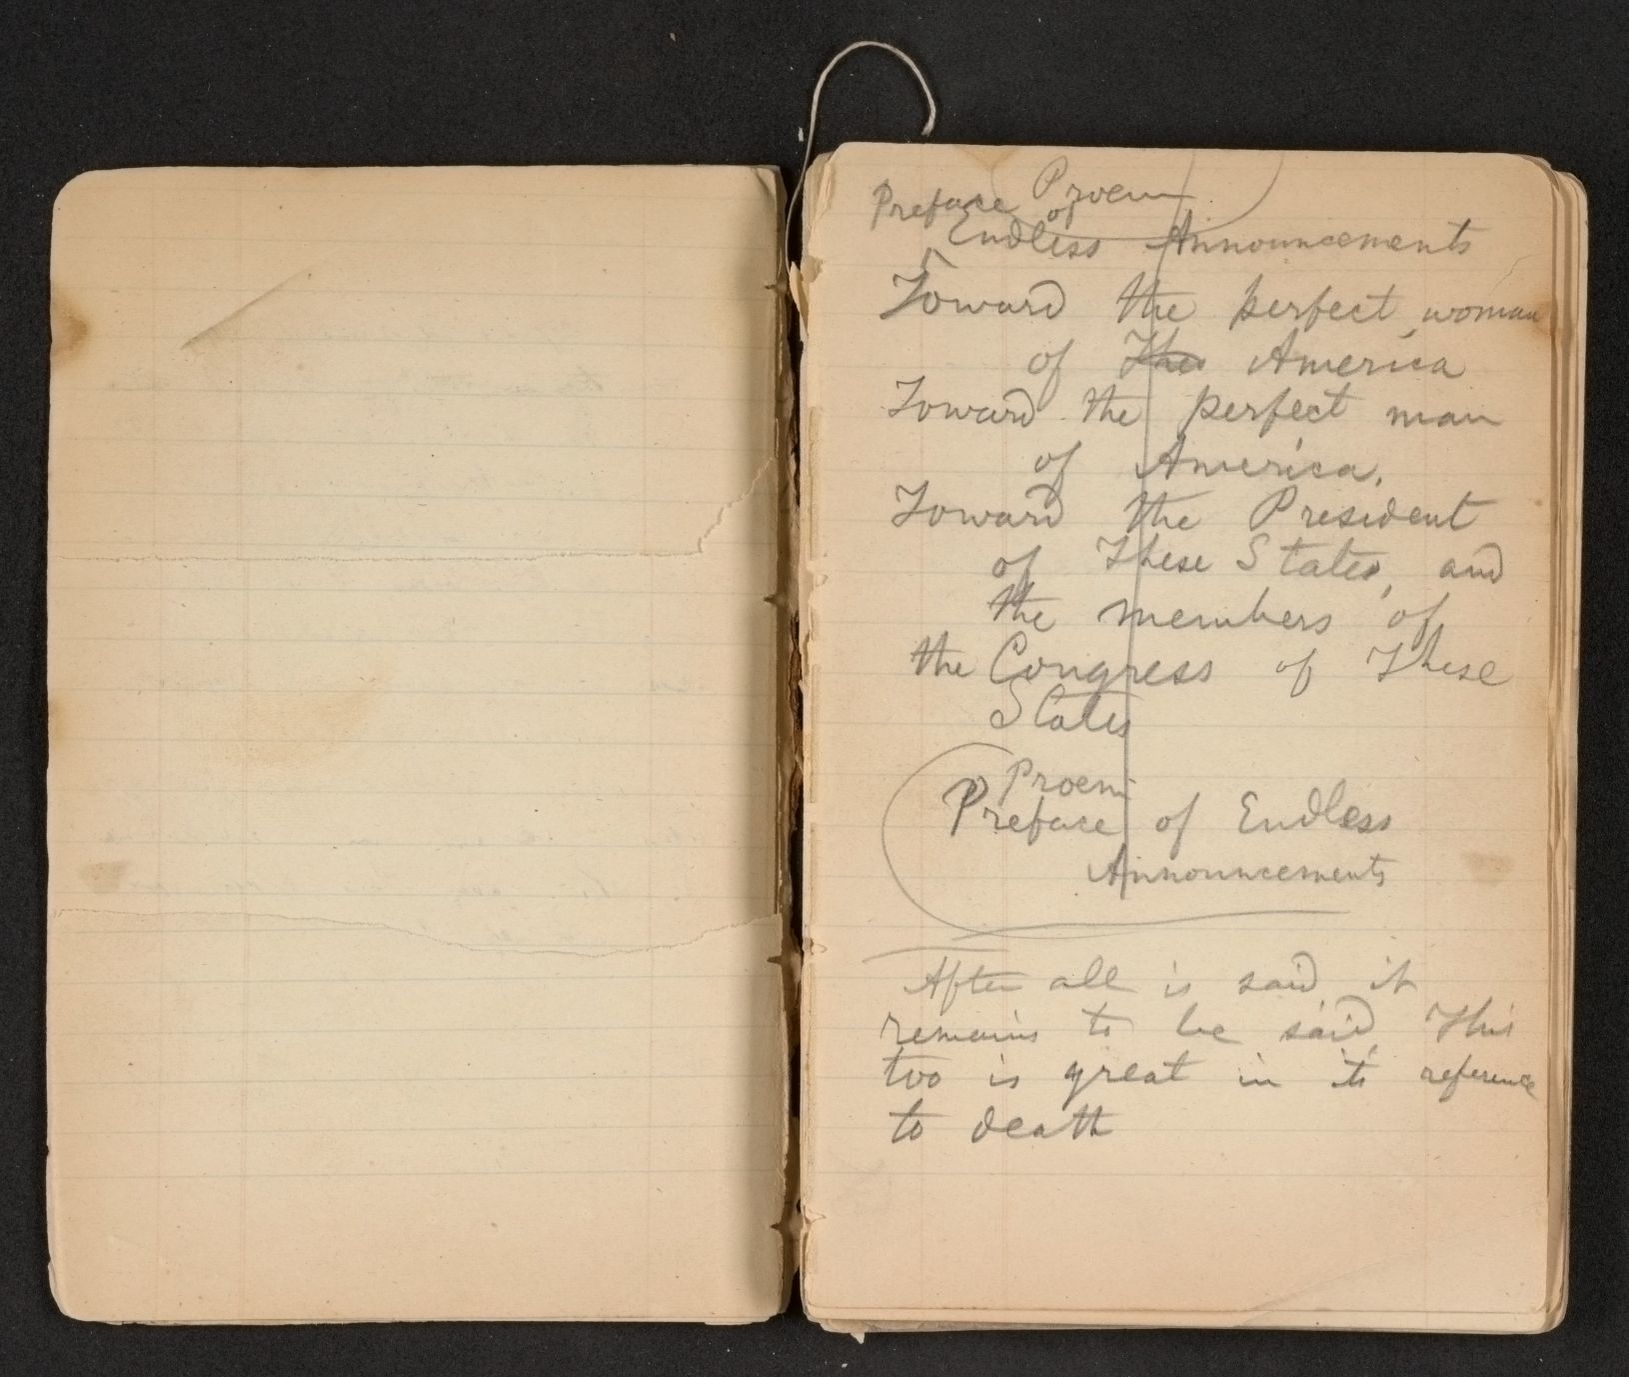 Preface Proem
of
Endless Announcements
Toward the perfect woman
of America
Toward the perfect man
of America,
Toward the President
of These States, and
the members of
the Congress of These
States
Proem
Preface of Endless
Announcements
After all is said it
remains to be said, This
too is great in its reference
to death